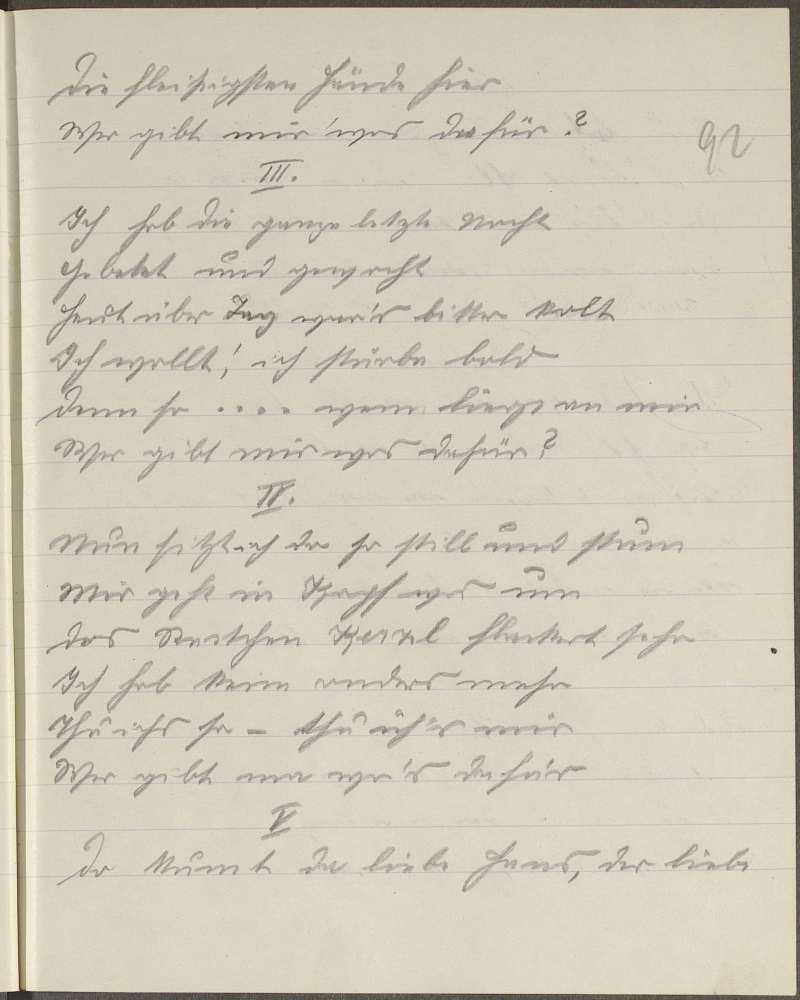 die fleißigsten Hände hier
Wer gibt mir 'was dafür?
92
III.
Ich hab die ganze letzte Nacht
Gebetet und gewacht
Heut über Tag war's bitter kalt
Ich wollt', ich stürbe bald
denn so .... wenn liegt an mir
Wer gibt mir was dafür?
IV.
Nun sitz ich da so still und stum
Mir geht im Kopf was um
das Kerzel flackert sehr
Ich hab kein anders mehr
Thu ichs so – thu ich's mir
Wer gibt ma wa's dafür
V
do kumt da liebe Hans, der liebe